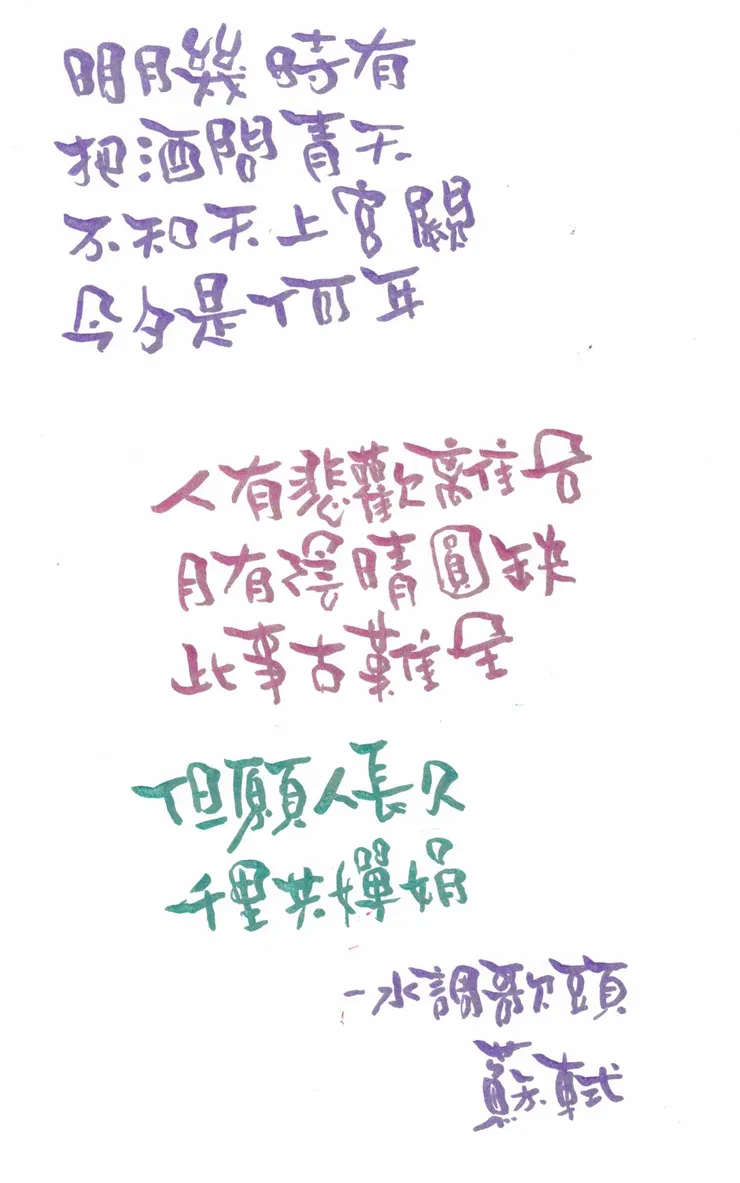 明月幾時有
把酒問青天
不知天上宮闕
今夕是何年
人有悲歡離合
月有陰晴圓缺
此事古難全
但願人長久
千里共嬋娟
-水調歌頭
蘇軾